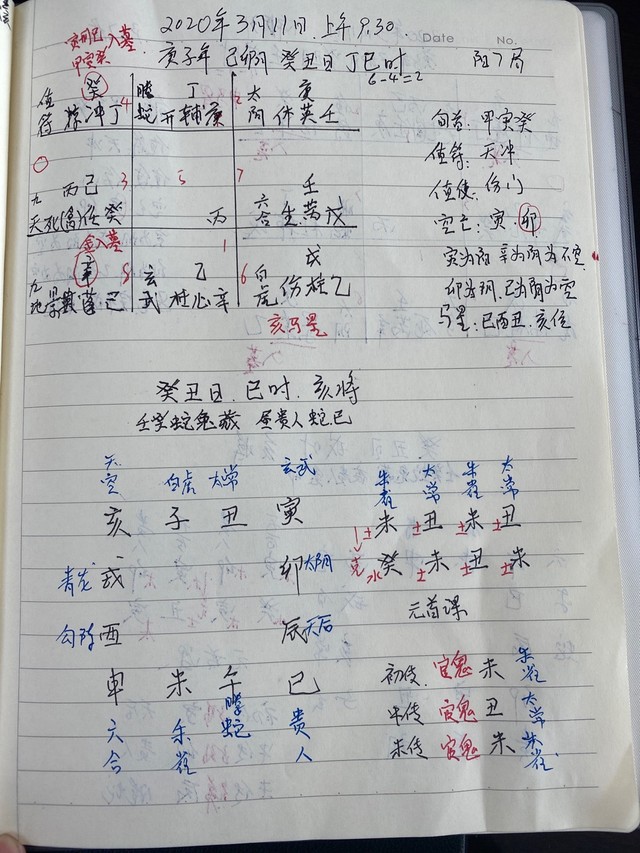 2020年3月11日.上午9.30
Date No.
寅刑巳 入墓
甲寅癸
庚子年 己卯月 癸丑日 丁巳时 阳7局
6-4=2
值符 癸 4 冲丁
腾蛇 丁 开辅庚
2 太阴 庚 休英壬
旬首: 甲寅癸
值符: 天冲
值使: 伤门
空亡: 寅.卯
寅为阳 辛为阴为不空
卯为阴.己为阴为空
马星: 巳酉丑.亥位
九天 丙己 3 死禽任癸
5 丙
7 六合 壬 生芮戊
金入墓
九地 辛 8 景蓬己
1 玄武 乙 杜心辛
6 白虎 戊 伤柱乙
亥马星
癸丑日.巳时.亥将
壬癸蛇兔藏 昼贵人蛇巳
天空 白虎 太常 玄武
亥 子 丑 寅
青龙 戌 卯 太阴
勾陈 酉 辰 天后
申 未 午 巳
六合 朱雀 腾蛇 贵人
朱雀 太常 朱雀 太常
土未 土丑 土未 土丑
克 水癸 土未 土丑 土未
元首课
初传. 官鬼 未 朱雀
中传 官鬼 丑 太常
末传 官鬼 未 朱雀